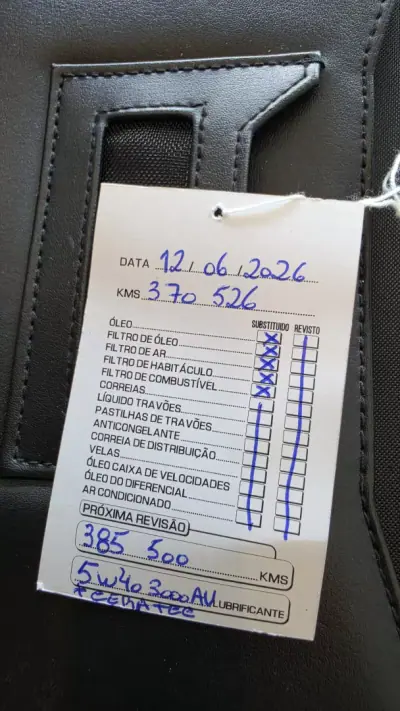 DATA 12/06/2026
KMS 370 526
SUBSTITUIDO REVISTO
ÓLEO
FILTRO DE ÓLEO
FILTRO DE AR
FILTRO DE HABITÁCULO
FILTRO DE COMBUSTÍVEL
CORREIAS
LÍQUIDO TRAVÕES
PASTILHAS DE TRAVÕES
ANTICONGELANTE
CORREIA DE DISTRIBUIÇÃO
VELAS
ÓLEO CAIXA DE VELOCIDADES
ÓLEO DO DIFERENCIAL
AR CONDICIONADO
PRÓXIMA REVISÃO
385 500 KMS
5W40 3000AV LUBRIFICANTE
+CERATEC